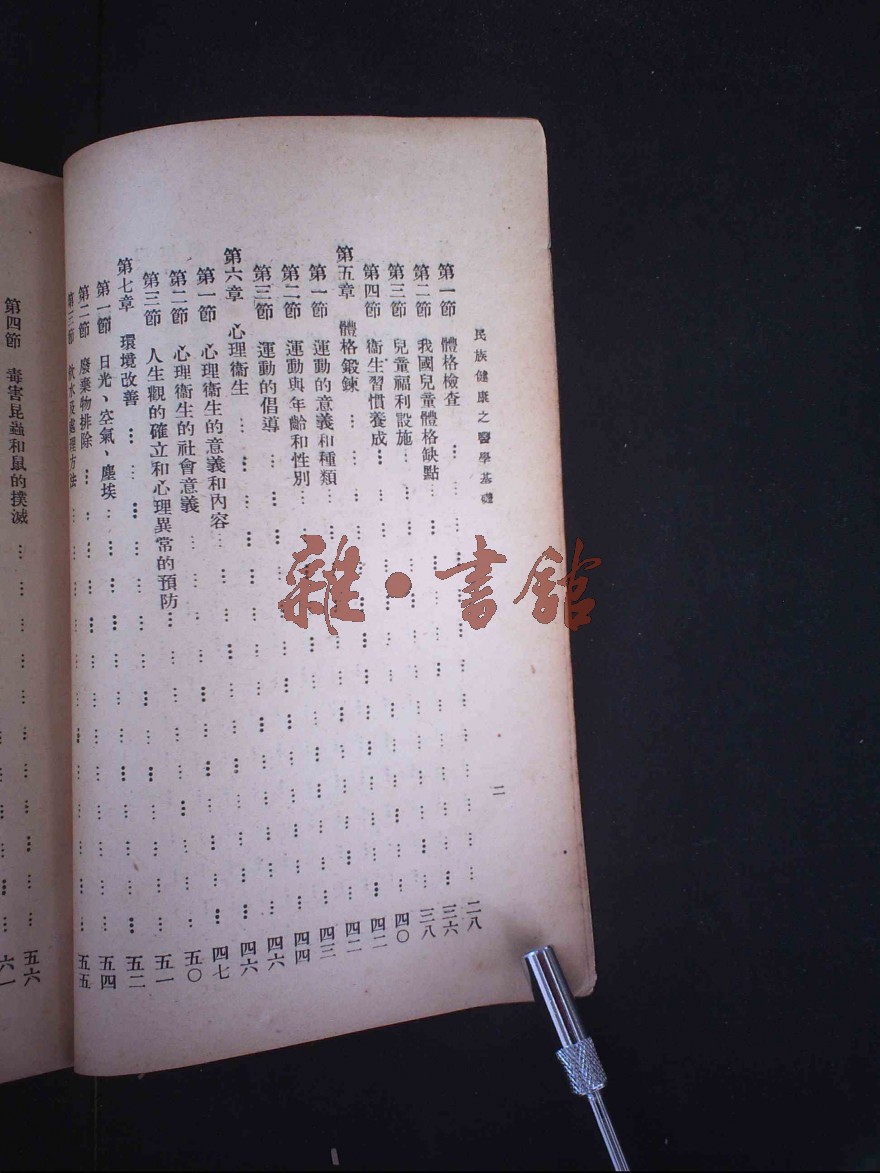 民族健康之醫學基礎 二
第一節 體格檢查 … … … … … … … … 二八
第二節 我國兒童體格缺點 … … … … … … … 三六
第三節 兒童福利設施 … … … … … … … 三八
第四節 衞生習慣養成 … … … … … … … 四〇
第五章 體格鍛鍊 … … … … … … … … 四二
第一節 運動的意義和種類 … … … … … … … 四二
第二節 運動與年齡和性別 … … … … … … … 四三
第三節 運動的倡導 … … … … … … … … 四四
第六章 心理衞生 … … … … … … … … 四六
第一節 心理衞生的意義和內容 … … … … … … 四六
第二節 心理衞生的社會意義 … … … … … … 四七
第三節 人生觀的確立和心理異常的預防 … … … … … 五〇
第七章 環境改善 … … … … … … … … 五一
第一節 日光、空氣、塵埃 … … … … … … … 五二
第二節 廢棄物排除 … … … … … … … … 五四
第三節 飲水及處理方法 … … … … … … … 五五
第四節 毒害昆蟲和鼠的撲滅 … … … … … … … 五六
六一
雜·書館